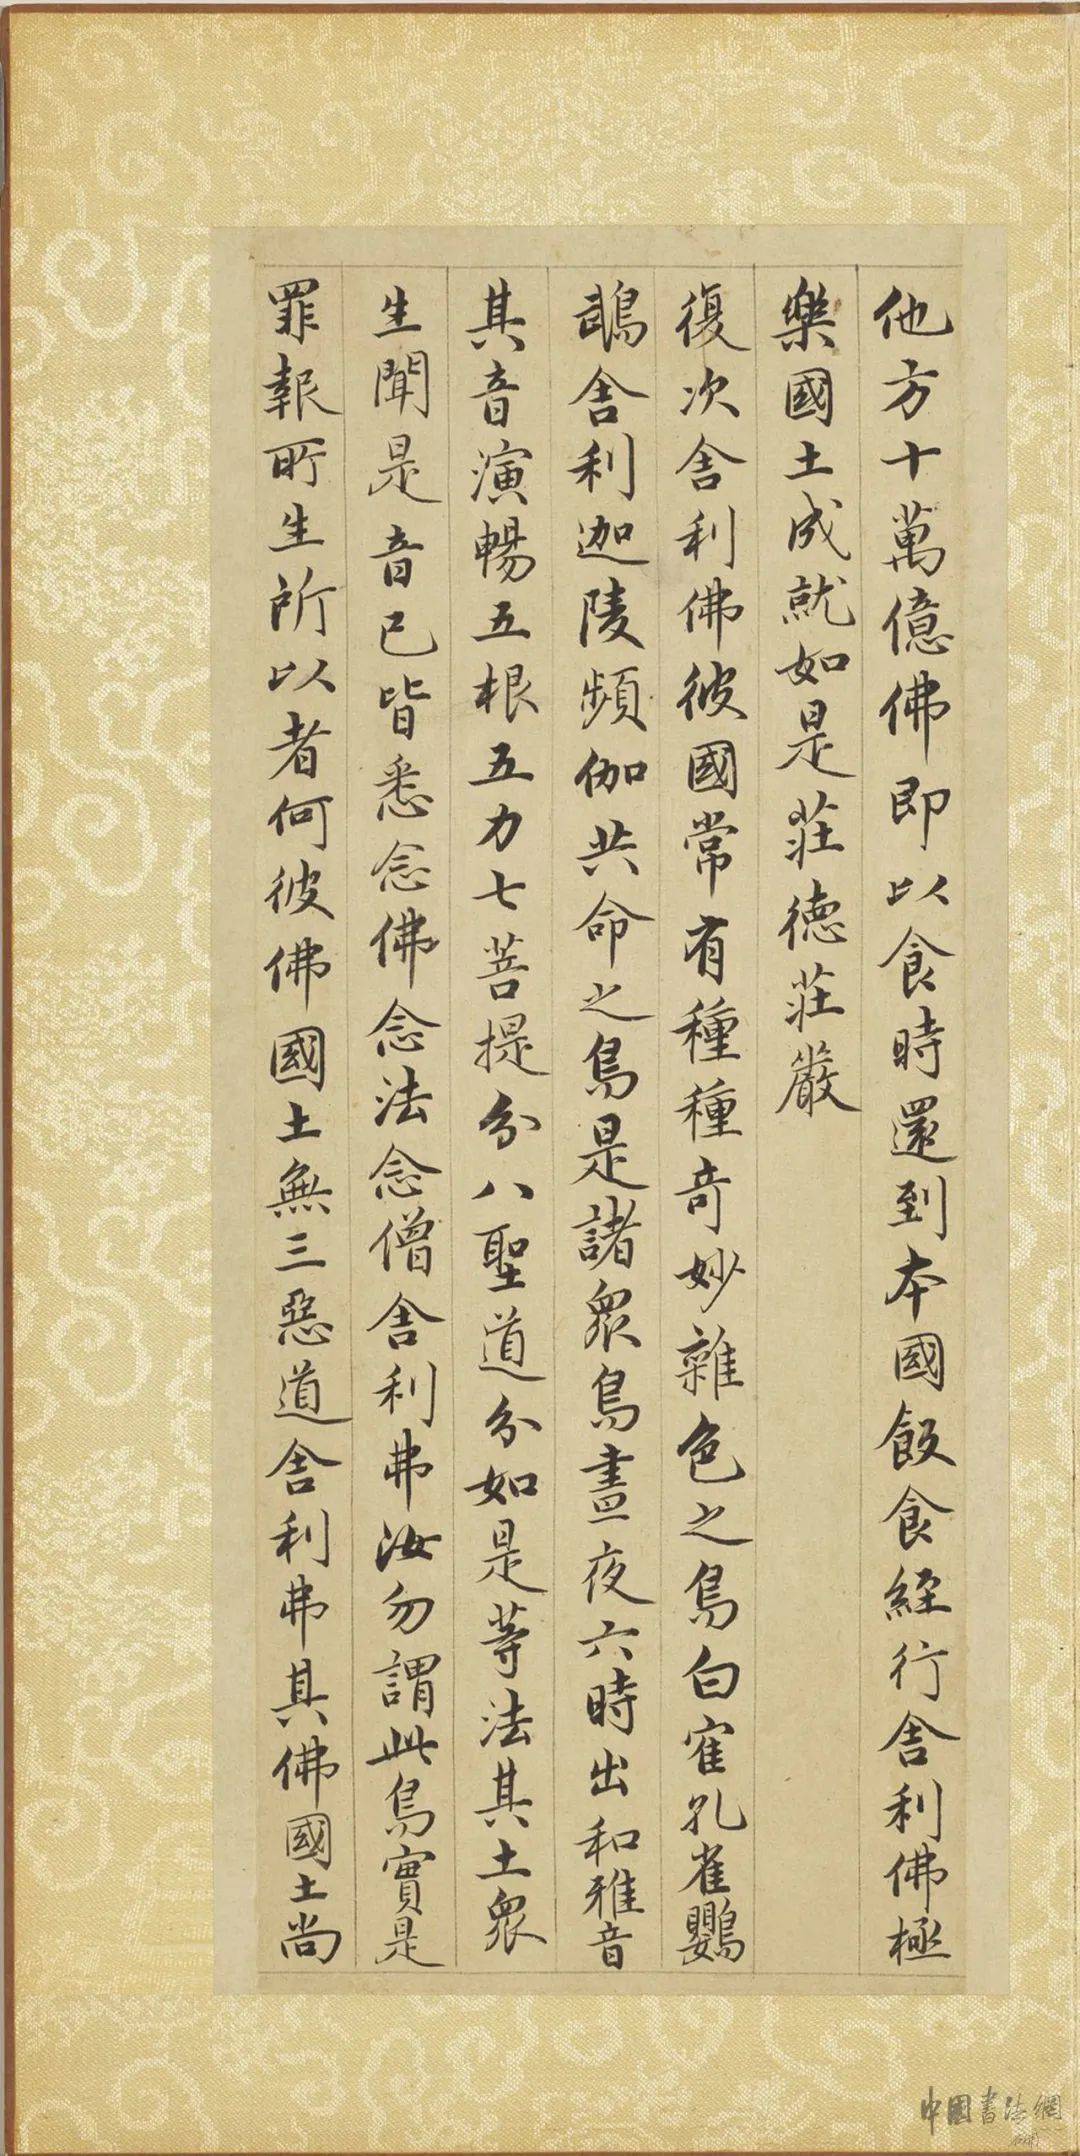 他方十萬億佛即以食時還到本國飯食經行舍利佛極
樂國土成就如是莊德莊嚴
復次舍利佛彼國常有種種奇妙雜色之鳥白寉孔雀鸚
鵡舍利迦陵頻伽共命之鳥是諸衆鳥晝夜六時出和雅音
其音演暢五根五力七菩提分八聖道分如是等法其土衆
生聞是音已皆悉念佛念法念僧舍利弗汝勿謂此鳥實是
罪報所生所以者何彼佛國土無三惡道舍利弗其佛國土尚
中國書法網